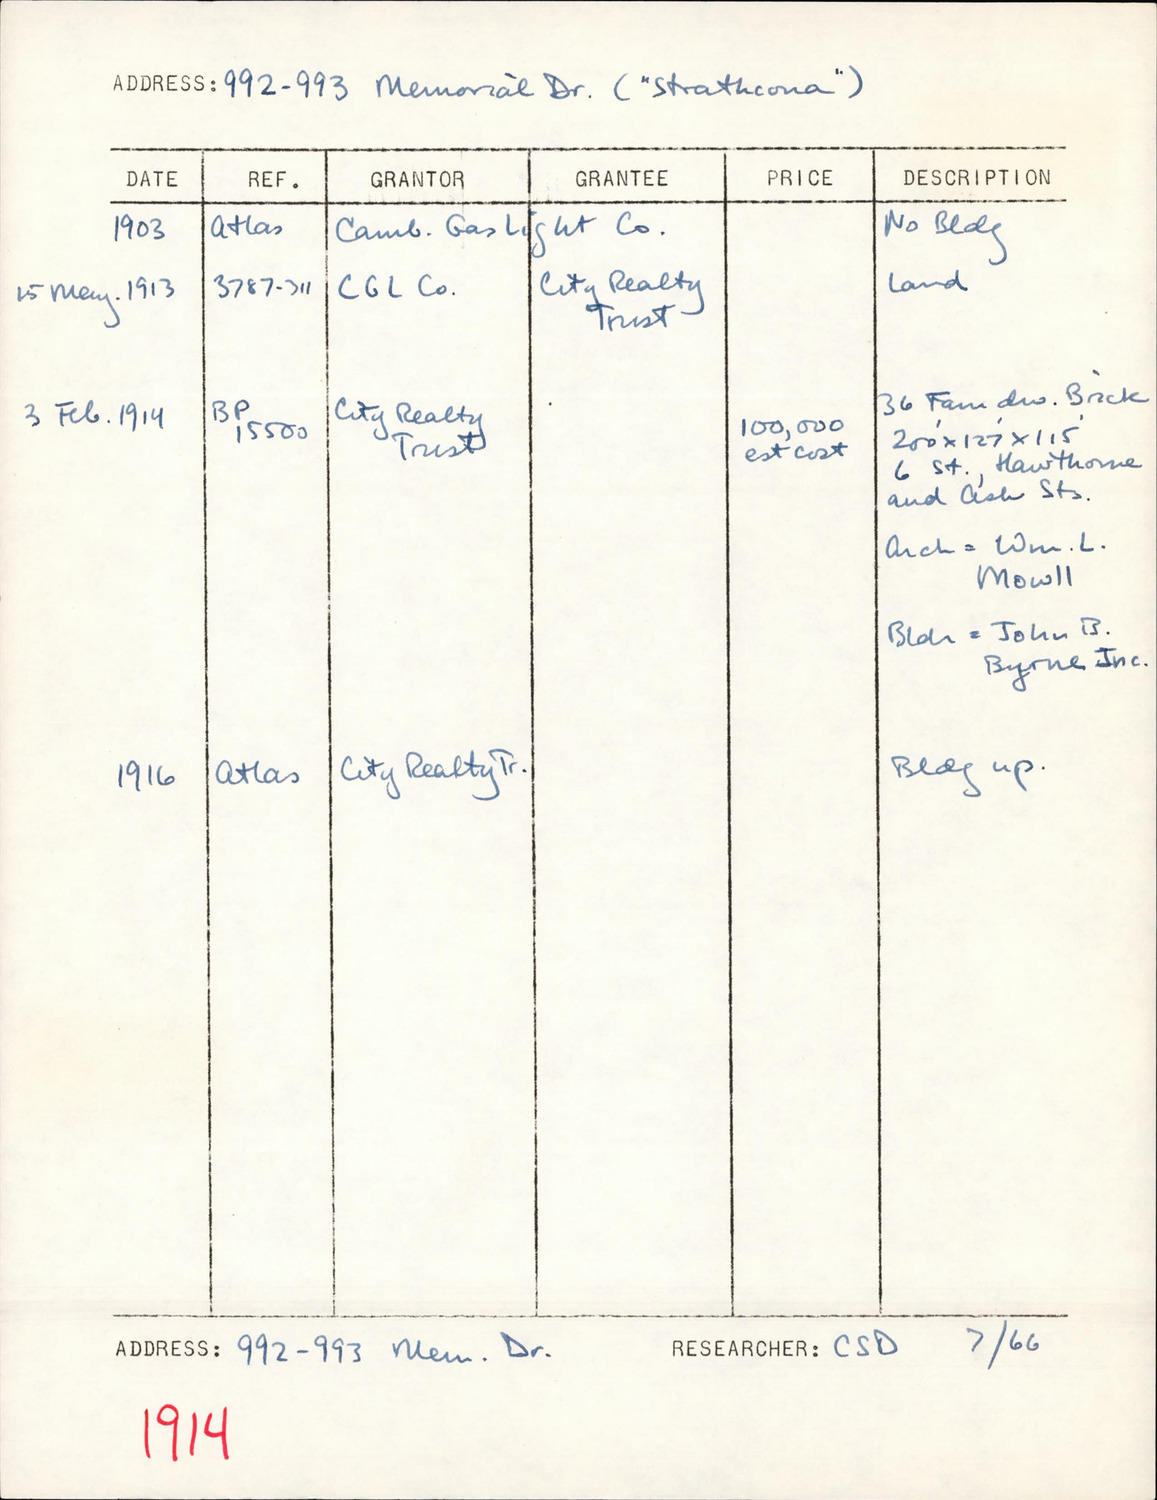 ADDRESS: 992-993 Memorial Dr. ("Strathcona")
DATE REF. GRANTOR GRANTEE PRICE DESCRIPTION
1903 Atlas Camb. Gas Light Co. No Bldg
15 May. 1913 3787-311 CGL Co. City Realty Trust Land
3 Feb. 1914 BP 15500 City Realty Trust 100,000 est cost 36 Fam dw. Brick
200' x 127' x 115'
6 St., Hawthorne
and Ash Sts.
Arch = Wm. L.
Mowll
Bldr = John B.
Byrne Inc.
1916 Atlas City Realty Tr. Bldg up.
ADDRESS: 992-993 Mem. Dr. RESEARCHER: CSD 7/66
1914